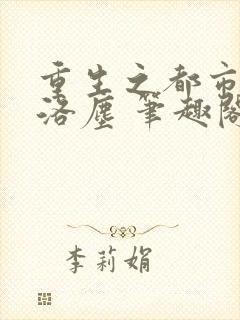 重生之都市
洛尘 笔趣阁
李莉娟